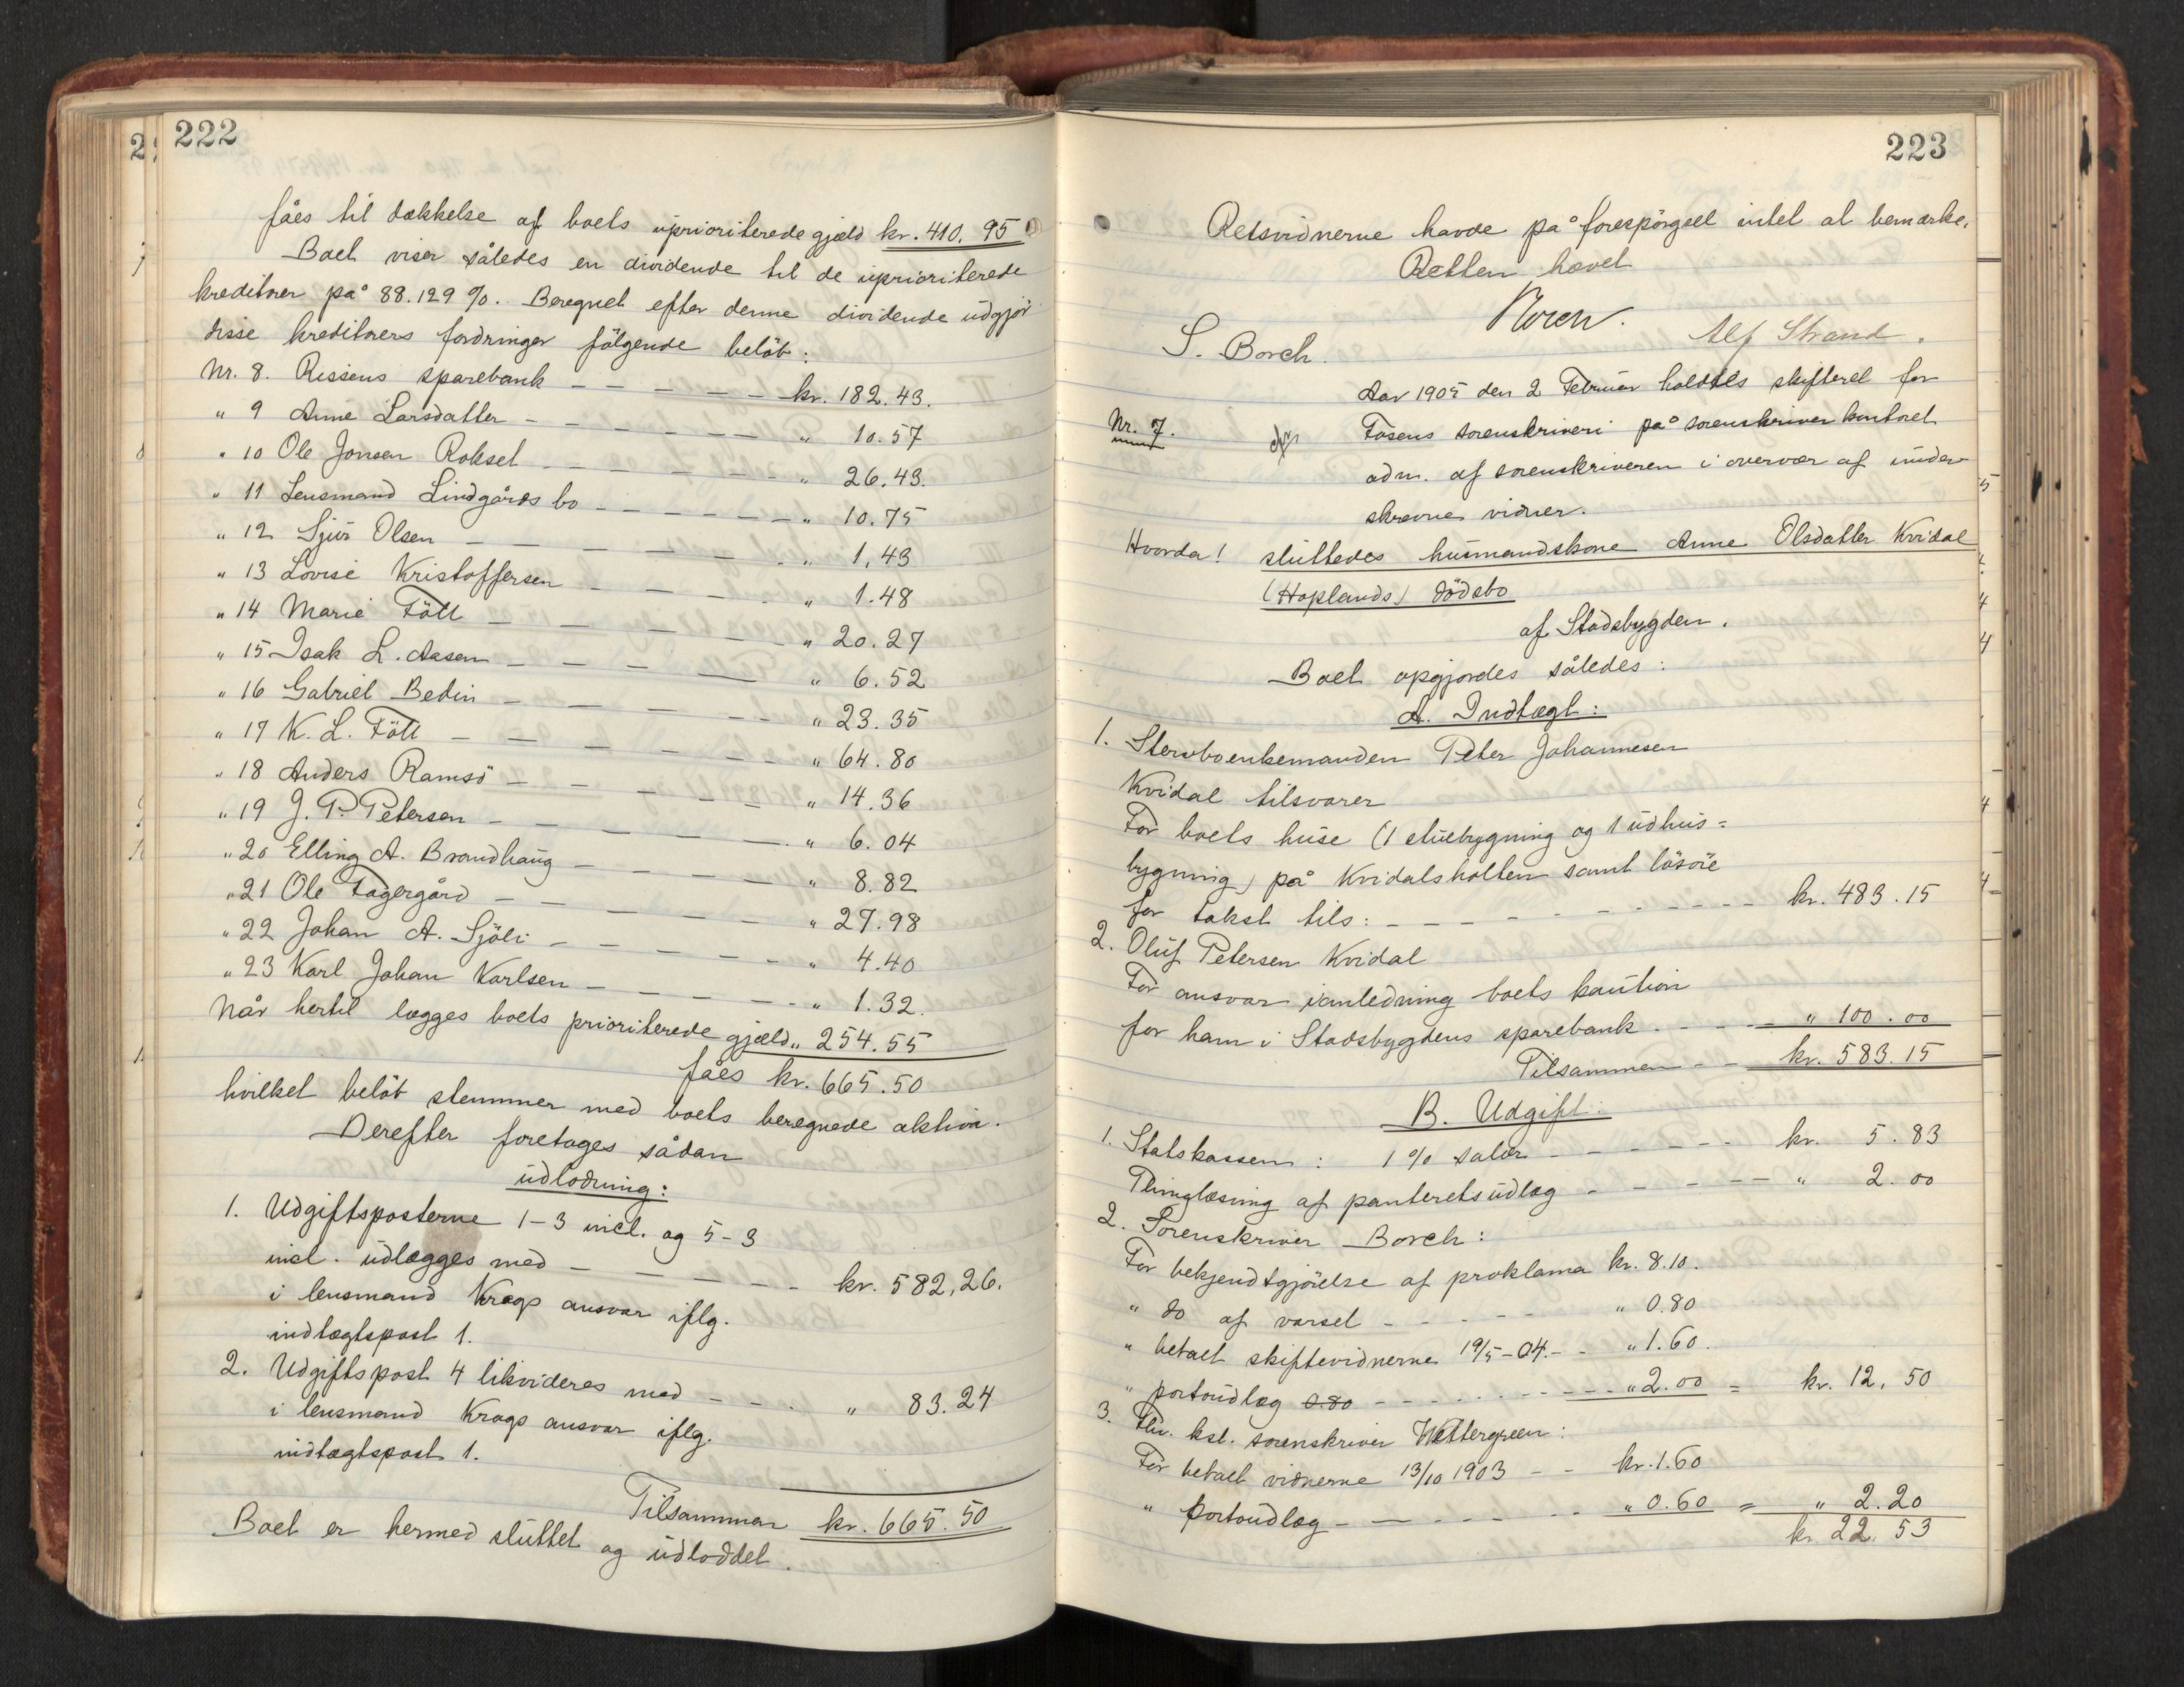 222
fåes til dækkelse af boets uprioriterede gjæld kr. 410.95
Boet viser således en dividende til de uprioriterede
kreditorer på 88.129 %. Beregnet efter denne dividende udgjør
disse kreditorers fordringer følgende beløb:
Nr. 8. Rissens sparebank - - - - - kr. 182.43.
" 9 Anne Larsdatter - - - - - - " 10.57
" 10 Ole Jonsen Rokset - - - - - " 26.43.
" 11 Lensmand Lindgårds bo - - - - - - " 10.75
" 12 Sjur Olsen - - - - - - - " 1,43
" 13 Lovise Kristoffersen - - - - - " 1.48
" 14 Marie Föll - - - - - - " 20.27
" 15 Isak L. Aasen - - - - - " 6.52
" 16 Gabriel Bedin - - - - - - " 23.35
" 17 K. L. Föll - - - - - - " 64.80
" 18 Anders Ramsö - - - - - - " 14.36
" 19 J. P. Petersen - - - - - - " 6.04
" 20 Elling A. Brandhaug - - - - " 8.82
" 21 Ole Fagergård - - - - - - " 27.98
" 22 Johan A. Sjöli - - - - - - " 4.40
" 23 Karl Johan Karlsen - - - - - " 1.32.
Når hertil lægges boets prioriterede gjæld " 254.55
fåes kr. 665.50
hvilket beløb stemmer med boets beregnede aktiva.
Derefter foretages sådan
udlodning:
1. Udgiftsposterne 1-3 incl. og 5-3
incl. udlægges med - - - - - kr. 582,26.
i lensmand Krags ansvar iflg.
indtægtspost 1.
2. Udgiftspost 4 likvideres med - - - " 83.24
i lensmand Krags ansvar iflg.
indtægtspost 1.
Tilsammen kr. 665.50
Boet er hermed sluttet og udloddet.
223
Retsvidnerne havde på forespörgsel intet at bemærke.
Retten hævet
S. Borch. Alf Strand.
Aar 1905 den 2 Februar holdtes skifteret for
Nr. 7. Fosens sorenskriveri på sorenskriverkontoret
adm. af sorenskriveren i overvær af under-
skrevne vidner.
Hvorda! sluttedes husmandskone Anne Olsdatter Kvidal
(Hoplands) dödsbo
af Stadsbygden.
Boet opgjordes således:
A. Indtægt:
1. Stervboenkemanden Peter Johannesen
Kvidal tilsvarer
For boets huse (1 stuebygning og 1 udhus=
bygning) på Kvidalsholten samt lösöre
for takst tils: - - - - - - - - - kr. 483.15
2. Oluf Petersen Kvidal
For ansvar i anledning boets kaution
for ham i Stadsbygdens sparebank - - - - " 100.00
Tilsammen - - kr. 583.15
B. Udgift:
1. Statskassen: 1 % salær - - - - - kr. 5.83
Thinglæsning af panteretsudlæg - - - - - " 2.00
2. Sorenskriver Borch:
For bekjendtgjörelse af proklama kr. 8.10.
" do af varsel - - - - - " 0.80
" betalt skiftevidnerne 19/5-04. - - " 1.60.
" portoudlæg 0.80 - - - - - - - " 2.00 = kr. 12,50
3. Fhv. kst. sorenskriver Wettergreen:
For betalt vidnerne 13/10 1903 - - kr. 1.60
" portoudlæg - - - - - - " 0.60 = " 2.20
kr. 22.53